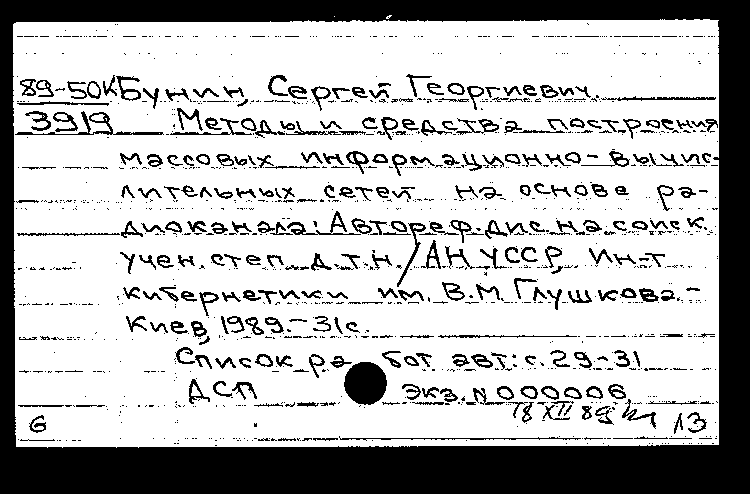 89-50К Бунин, Сергей Георгиевич.
3919 Методы и средства построения
массовых информационно-вычис-
лительных сетей на основе ра-
диоканала: Автореф. дис. на соиск.
учен. степ. д.т.н. / АН УССР, Ин-т
кибернетики им. В.М. Глушкова.-
Киев, 1989.-31с.
Список работ авт.: с. 29-31
ДСП Экз. N 000006
18 XII 89
6 13